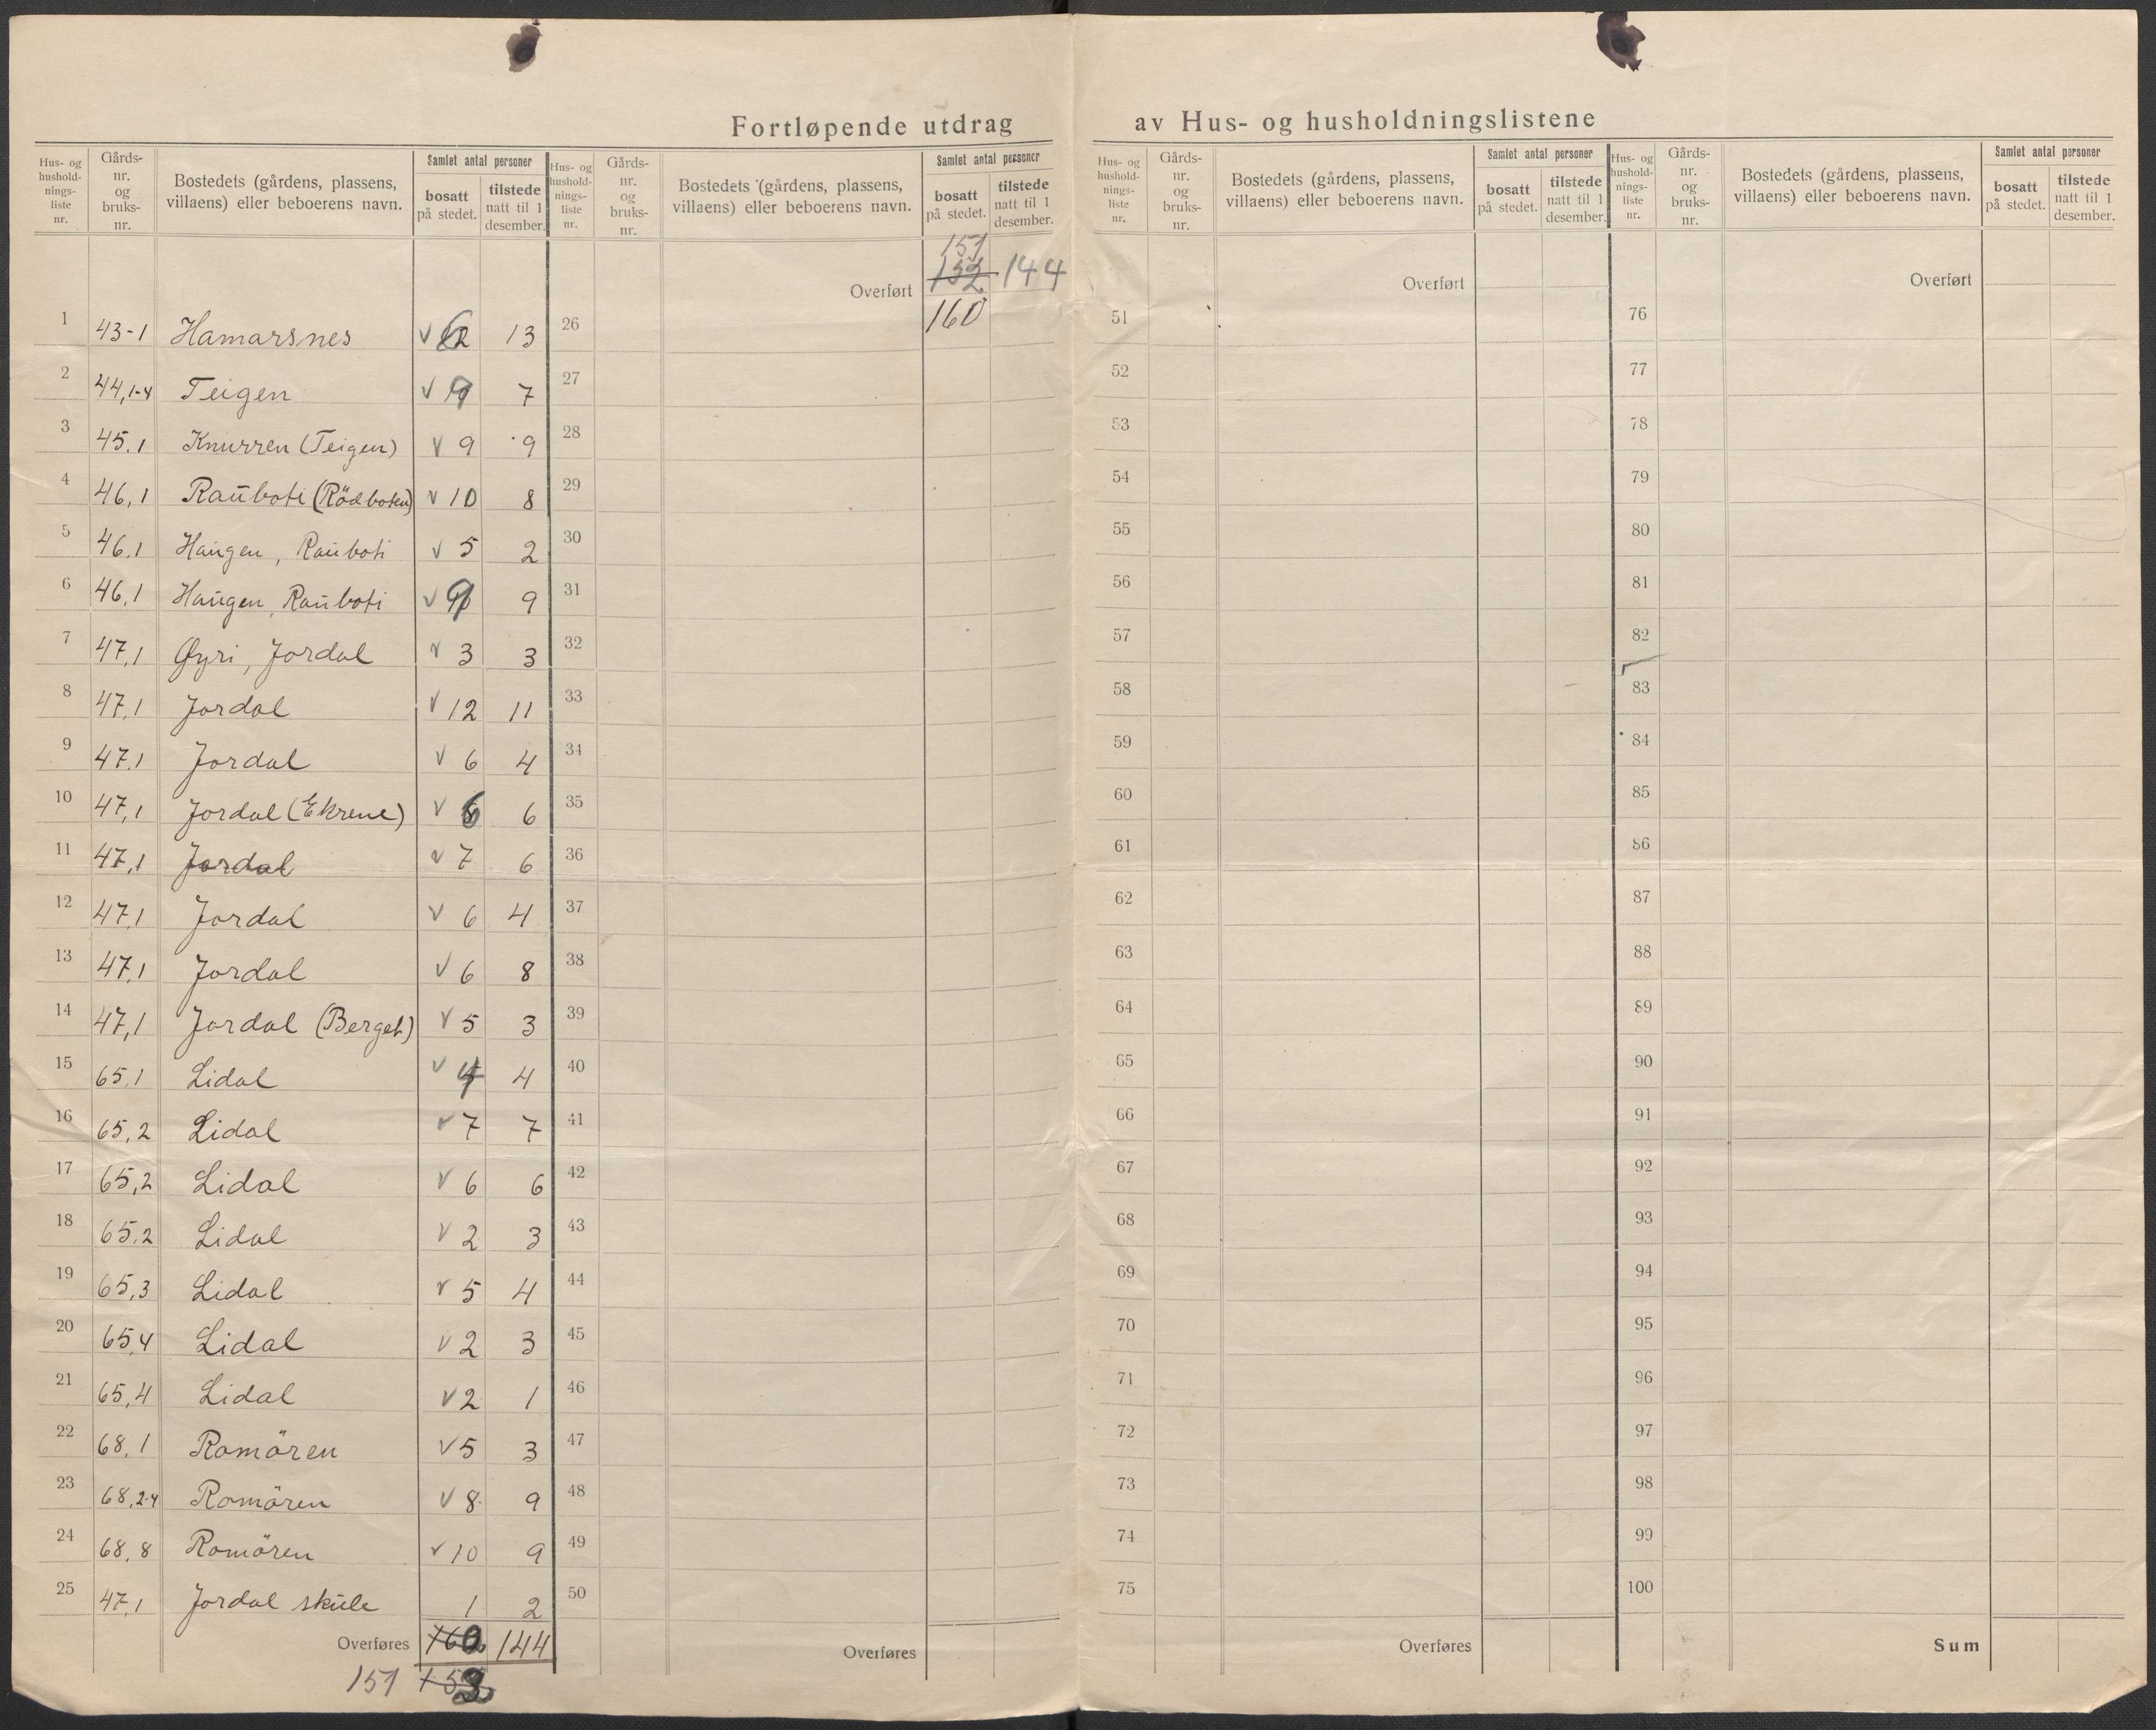 Fortløpende utdrag av Hus- og husholdningslistene
Hus- og hushold- nings- liste nr. Gårds- nr. og bruks- nr. Bostedets (gårdens, plassens, villaens) eller beboerens navn. Samlet antal personer bosatt på stedet. tilstede natt til 1 desember.
1 43-1 Hamarsnes V 13
2 44,1-4 Teigen V 9 7
3 45.1 Knurren (Teigen) V 9 9
4 46,1 Rauboti (Rödboten) V 10 8
5 46.1 Haugen, Rauboti V 5 2
6 46,1 Haugen, Rauboti V 9 9
7 47,1 Øyri, Jordal V 3 3
8 47,1 Jordal V 12 11
9 47.1 Jordal V 6 4
10 47,1 Jordal (Ekrene) V 6 6
11 47,1 Jordal V 7 6
12 47,1 Jordal V 6 4
13 47,1 Jordal V 6 8
14 47,1 Jordal (Berget) V 5 3
15 65,1 Lidal V 4 4
16 65,2 Lidal V 7 7
17 65,2 Lidal V 6 6
18 65,2 Lidal V 2 3
19 65,3 Lidal V 5 4
20 65,4 Lidal V 2 3
21 65,4 Lidal V 2 1
22 68,1 Romören V 5 3
23 68,2-4 Romören V 8 9
24 68,8 Romören V 10 9
25 47,1 Jordal skule 1 2
Overføres 160 144
151
Hus- og hushold- nings- liste nr. Gårds- nr. og bruks- nr. Bostedets (gårdens, plassens, villaens) eller beboerens navn. Samlet antal personer bosatt på stedet. tilstede natt til 1 desember.
151
Overført 152 144
160
26
27
28
29
30
31
32
33
34
35
36
37
38
39
40
41
42
43
44
45
46
47
48
49
50
Overføres
Hus- og hushold- nings- liste nr. Gårds- nr. og bruks- nr. Bostedets (gårdens, plassens, villaens) eller beboerens navn. Samlet antal personer bosatt på stedet. tilstede natt til 1 desember.
Overført
51
52
53
54
55
56
57
58
59
60
61
62
63
64
65
66
67
68
69
70
71
72
73
74
75
Overføres
Hus- og hushold- nings- liste nr. Gårds- nr. og bruks- nr. Bostedets (gårdens, plassens, villaens) eller beboerens navn. Samlet antal personer bosatt på stedet. tilstede natt til 1 desember.
Overført
76
77
78
79
80
81
82
83
84
85
86
87
88
89
90
91
92
93
94
95
96
97
98
99
100
Sum